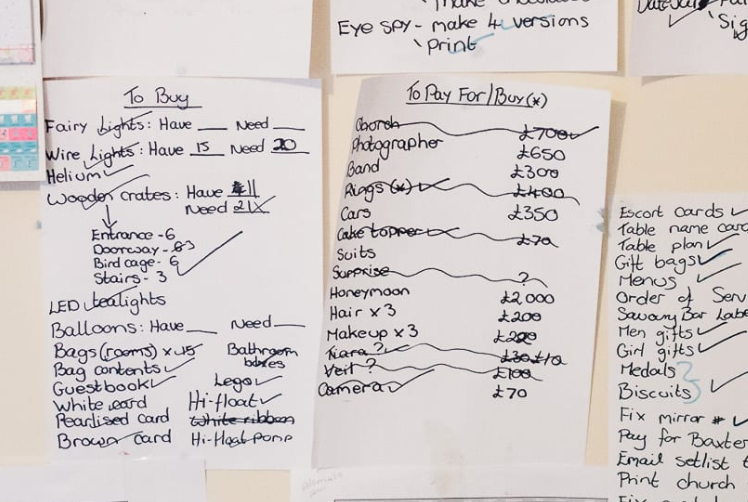 Eye spy - make 4 versions
Print
To Buy
Fairy Lights: Have ___ Need ___
Wire Lights: Have 15 Need 20
Helium
Wooden crates: Have 11
Need 21
Entrance - 6
Doorway - 3
Bird cage - 6
Stairs - 3
LED tealights
Balloons: Have ___ Need ___
Bags (rooms) x 15
Bag contents
Guestbook
White card
Pearlised card
Brown card
Bathroom boxes
Lego
Hi-float
White ribbon
Hi-float pomp
To Pay For/Buy (*)
Church £700
Photographer £650
Band £300
Rings (*) £400
Cars £350
Cake topper £70
Suits
Surprise ?
Honeymoon £2,000
Hair x 3 £200
Makeup x 3
Tiara ? £30 £10
Veil ? £100
Camera £70
Escort cards
Table name card
Table plan
Gift bags
Menus
Order of Serv
Savoury Bar Labe
Men gifts
Girl gifts
Medals
Biscuits
Fix mirror
Pay for Baxter
Email setlist t
Print church